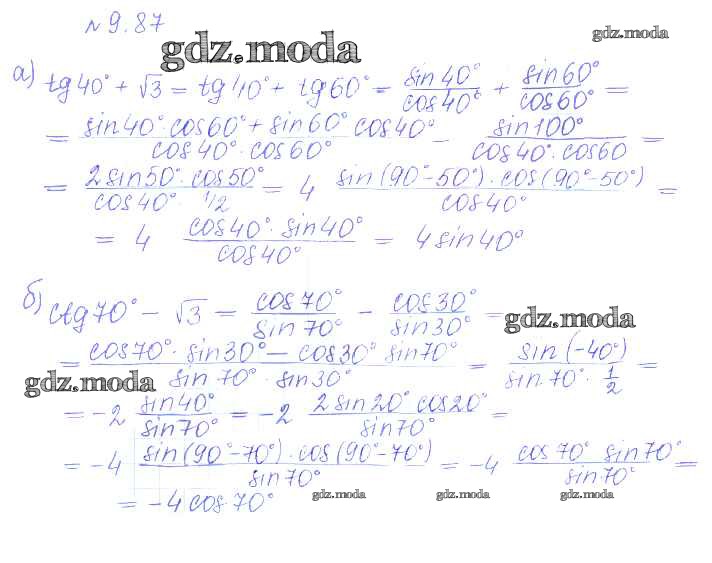 № 9.87
gdz.moda
gdz.moda
а) tg 40° + √3 = tg 40° + tg 60° = sin 40° / cos 40° + sin 60° / cos 60° =
= (sin 40° · cos 60° + sin 60° cos 40°) / (cos 40° · cos 60°) = sin 100° / (cos 40° · cos 60) =
= (2 sin 50° · cos 50°) / (cos 40° · 1/2) = 4 (sin (90° - 50°) · cos (90° - 50°)) / cos 40° =
= 4 (cos 40° · sin 40°) / cos 40° = 4 sin 40°
б) ctg 70° - √3 = cos 70° / sin 70° - cos 30° / sin 30° =
gdz.moda
= (cos 70° · sin 30° - cos 30° sin 70°) / (sin 70° · sin 30°) = sin (-40°) / (sin 70° · 1/2) =
gdz.moda
= -2 sin 40° / sin 70° = -2 (2 sin 20° cos 20°) / sin 70° =
= -4 (sin (90° - 70°) · cos (90° - 70°)) / sin 70° = -4 (cos 70° sin 70°) / sin 70° =
= -4 cos 70°
gdz.moda
gdz.moda
gdz.moda